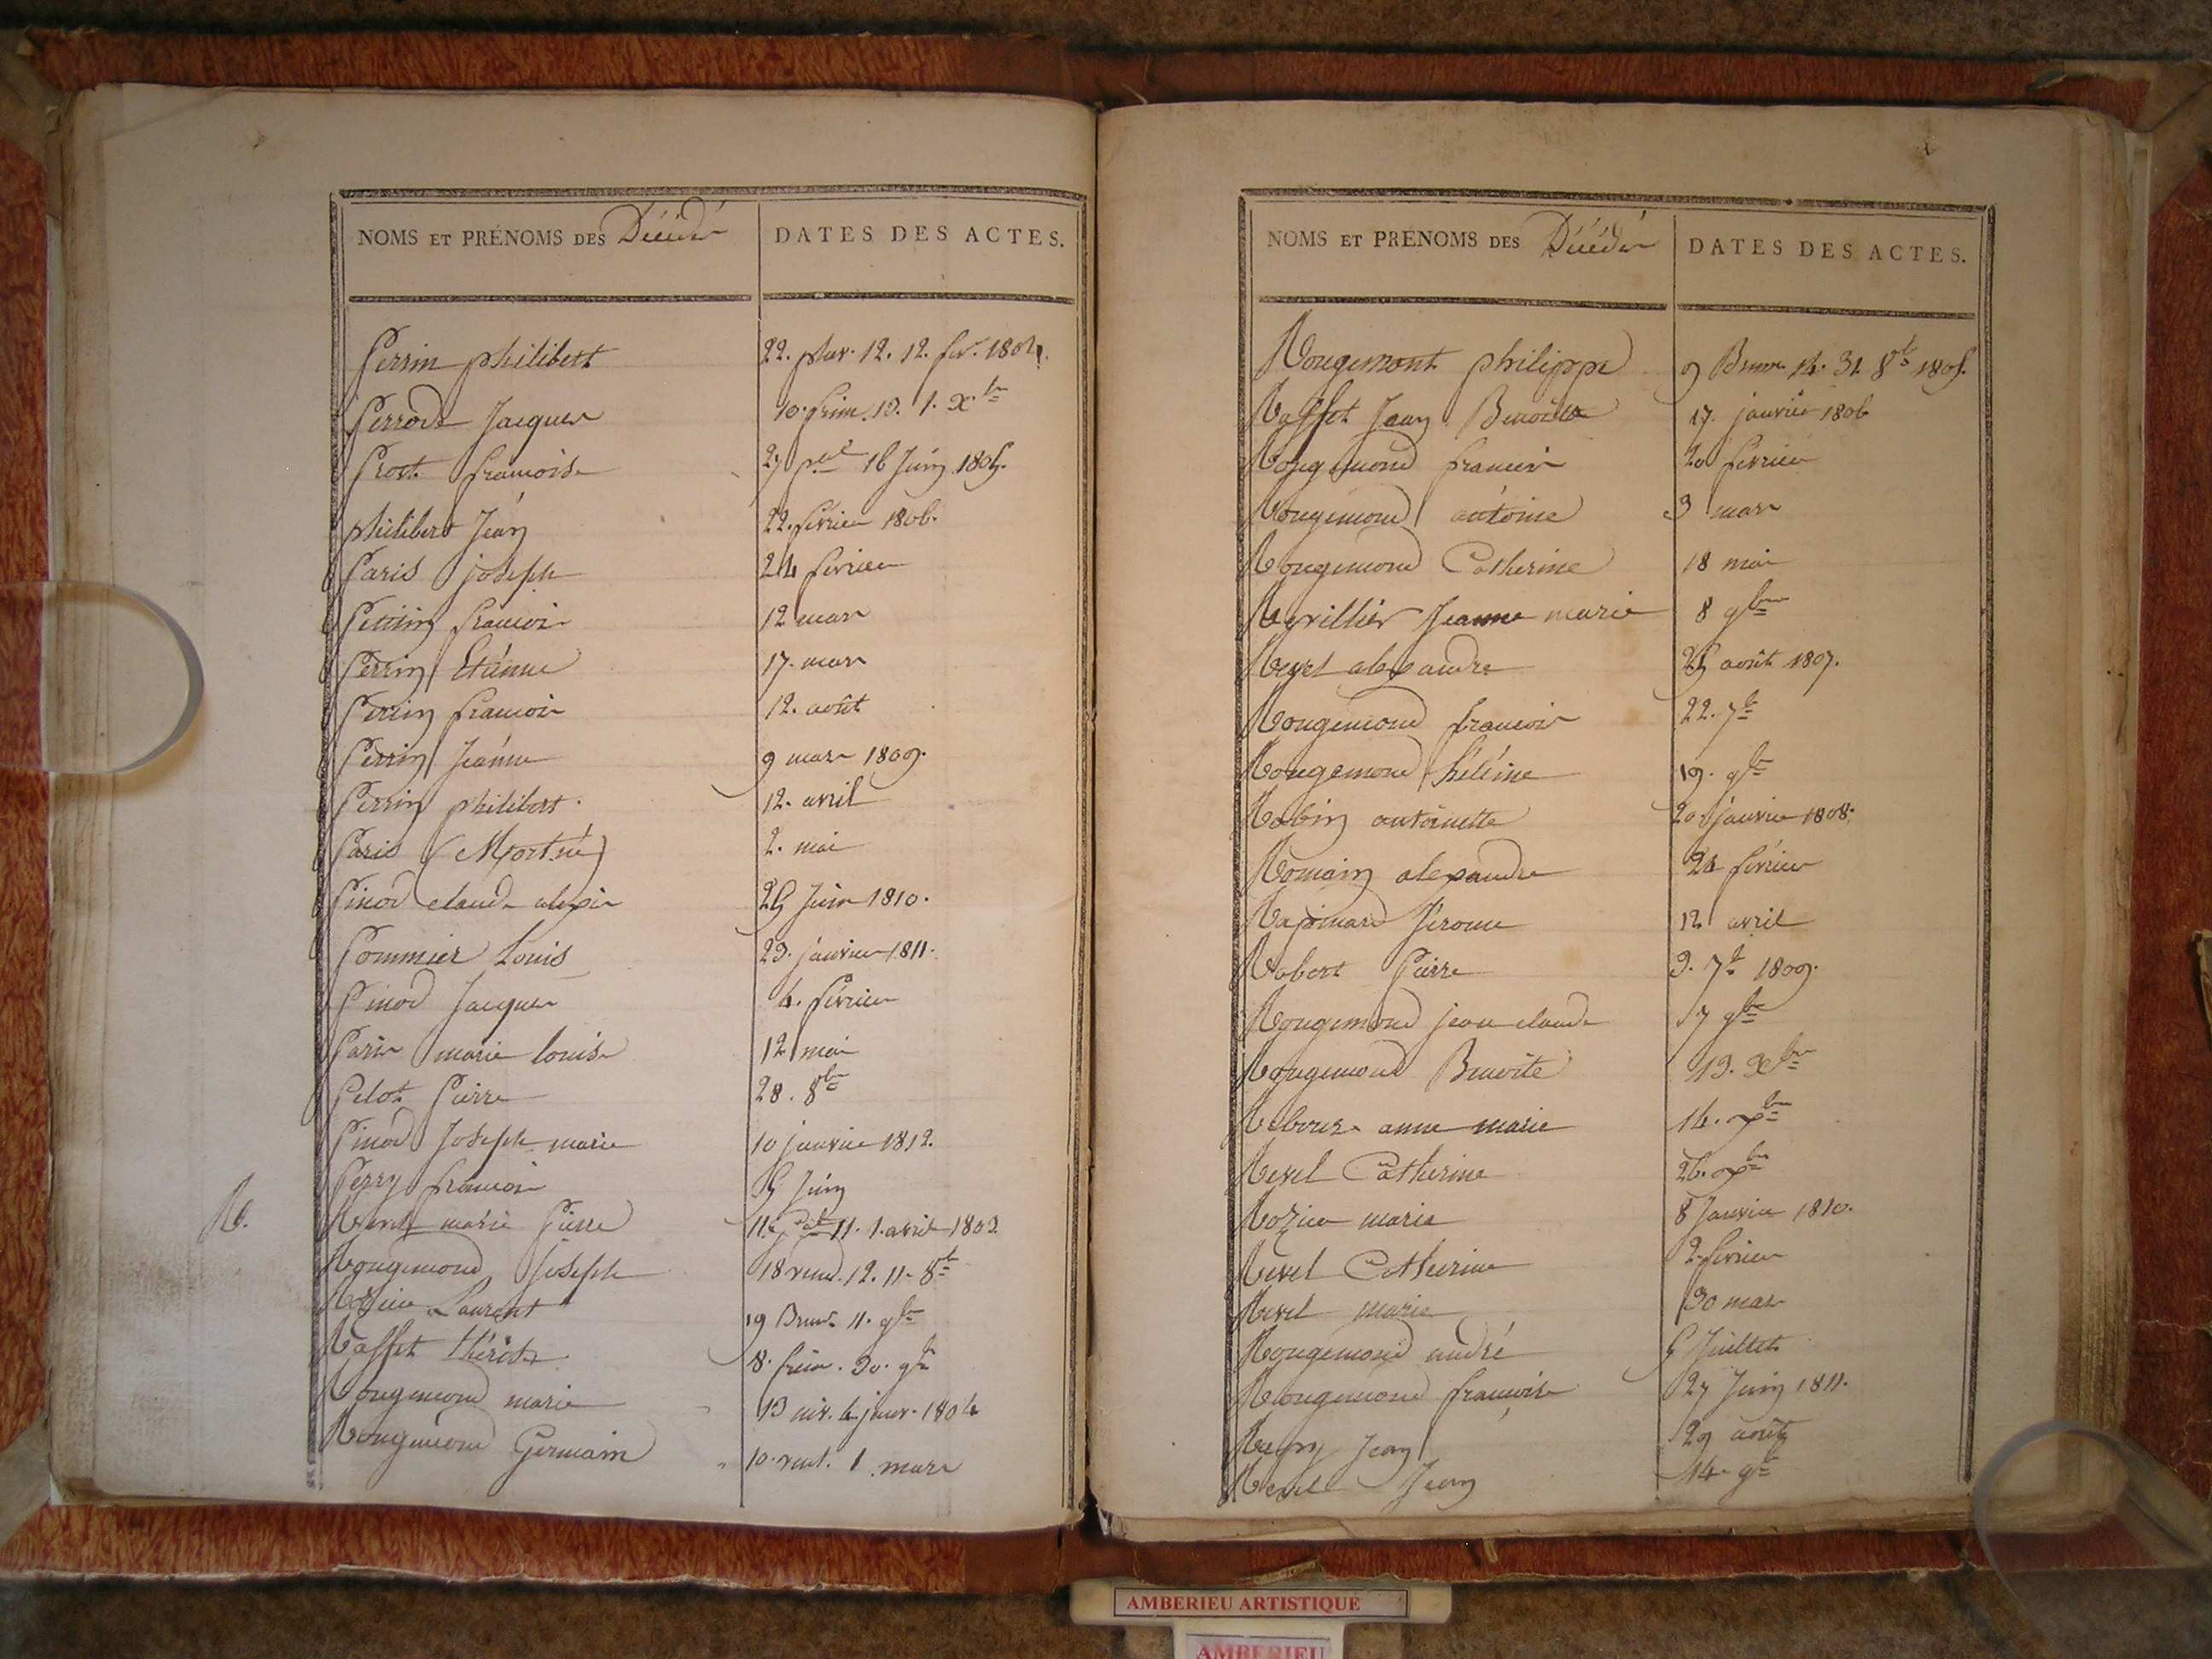 NOMS ET PRÉNOMS DES Décédés DATES DES ACTES.
Perrin philibert 22. pluv. 12. 12. fev. 1804.
Perrodt Jacques 10. frim. 12. 1. Xbre
Prost francoise 27 pral 16 Juin 1805.
philibert Jean 22. février 1806.
Paris joseph 24 février
francois 12 mars
Perrin Etiénne 17. mars
Perrin francois 12. août
Perrin Jeanne 9 mars 1809.
Perrin philibert. 12. avril
Paris (Mort né) 2. mai
Pinod claude alexis 25 Juin 1810.
Pommier Louis 23. janvier 1811.
Pinod Jacques 4. février
Paris marie louise 12 mai
Pelot Pierre 28. 8bre
Pinod Joseph marie 10 janvier 1812.
Perry francois 5 Juin
R.
Revel marie Pierre 11. 11. 1. avril 1803.
Rougemond Joseph 18 vend. 12. 11. 8bre
Rozier Laurent 19 Brum. 11. 9bre
Raffet thérèse 8. frim. 30. 9bre
Rougemond marie 13 niv. 4 janv. 1804
Rougemond Germain 10. vent. 1 mars
NOMS ET PRÉNOMS DES Décédés DATES DES ACTES.
Rougemont philippe 9 Brum. 14. 31 8bre 1805.
Raffet Jean Benoit 17. janvier 1806
Rougemond francois 20 février
Rougemond antoine 3 mars
Rougemond Catherine 18 mai
Reyvillier Jeanne marie 8 9bre
Revel alexandre 25 août 1807.
Rougemond francois 22. 7bre
Rougemond hélène 19. 9bre
Robin antoinette 20 janvier 1808.
Romain alexandre 24 février
Rapinard Jérome 12 avril
Robert Pierre 3. 7bre 1809.
Rougemond jean claude 17 9bre
Rougemond Benoite 13. Xbre
anne marie 14. Xbre
Revel Catherine 26. Xbre
Rozier marie 8 Janvier 1810.
Revel Catherine 2. février
Revel marie 30 mars
Rougemond andré 5 Juillet
Rougemond francoise 27 Juin 1811.
Jean 29 août
Revel Jean 14. 9bre
AMBERIEU ARTISTIQUE
AMBERIEU